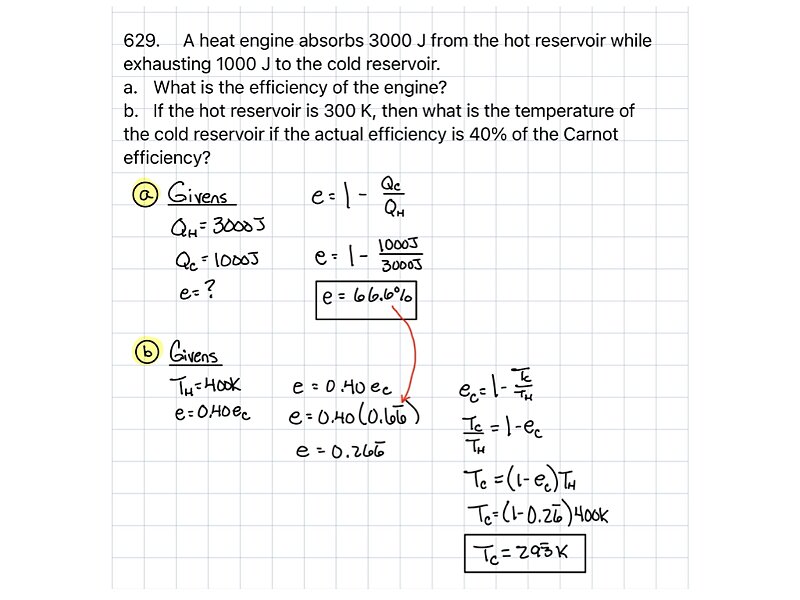 629. A heat engine absorbs 3000 J from the hot reservoir while
exhausting 1000 J to the cold reservoir.
a. What is the efficiency of the engine?
b. If the hot reservoir is 300 K, then what is the temperature of
the cold reservoir if the actual efficiency is 40% of the Carnot
efficiency?
a Givens
Q_H = 3000J
Q_C = 1000J
e = ?
e = 1 - Q_C/Q_H
e = 1 - 1000J/3000J
e = 66.6%
b Givens
T_H = 400K
e = 0.40 e_C
e = 0.40 e_C
e = 0.40 (0.66̅)
e = 0.266̅
e_C = 1 - T_C/T_H
T_C/T_H = 1 - e_C
T_C = (1 - e_C) T_H
T_C = (1 - 0.26̅) 400K
T_C = 293̅ K